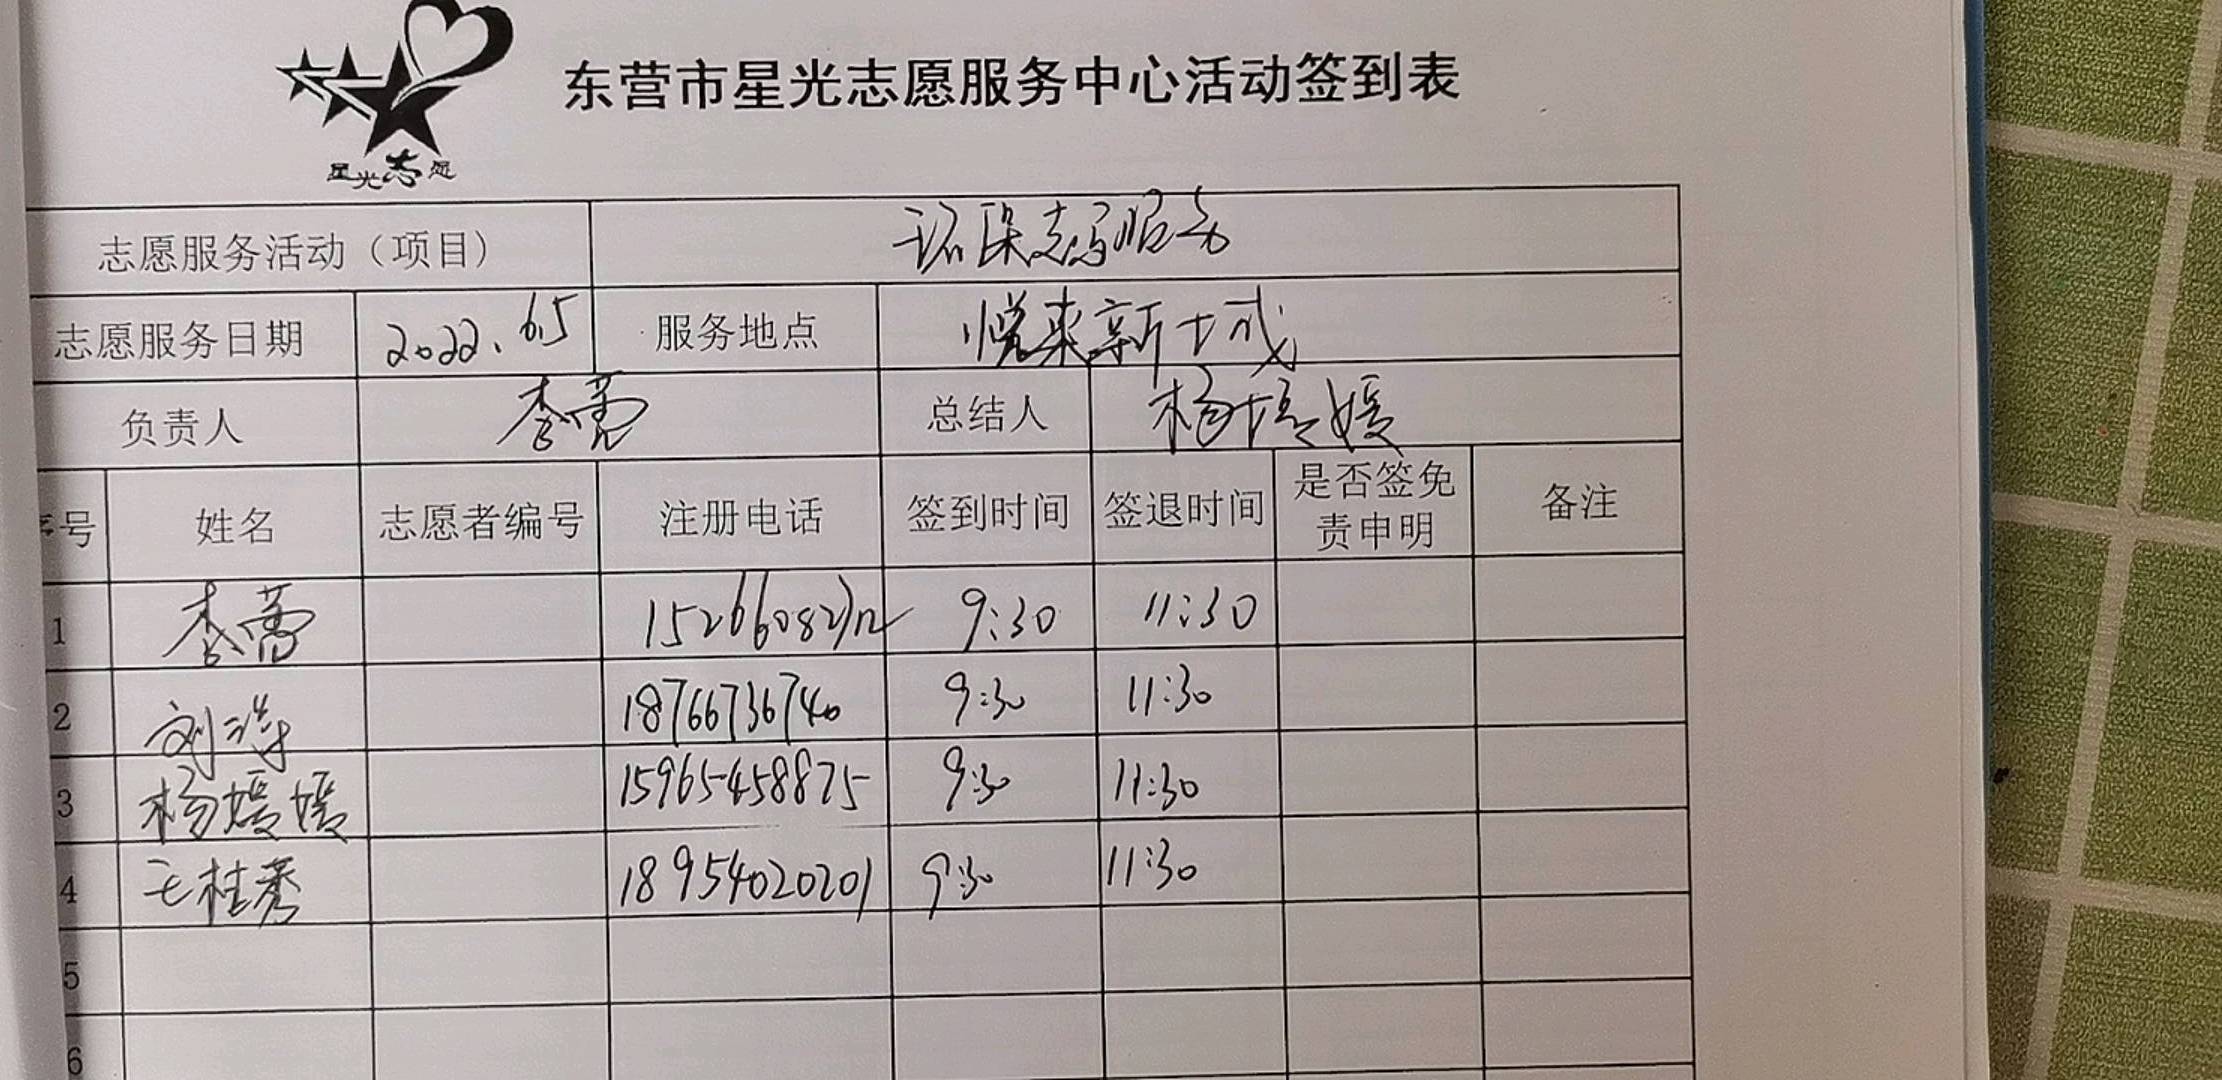 东营市星光志愿服务中心活动签到表
星光志愿
志愿服务活动（项目） 环保志愿服务
志愿服务日期 2022.6.5 服务地点 悦来新城
负责人 李蕾 总结人 杨媛媛
序号 姓名 志愿者编号 注册电话 签到时间 签退时间 是否签免责申明 备注
1 李蕾 9:30 11:30
2 刘萍 18766736740 9:30 11:30
3 杨媛媛 15965458875 9:30 11:30
4 王桂秀 18954020201 9:30 11:30
5
6